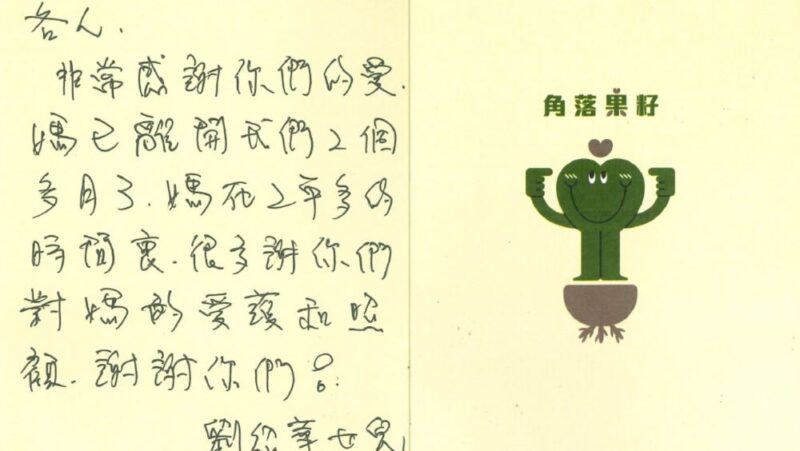 各人.
非常感謝你們的愛.
媽已離開我們2個
多月了.媽 2年多的
時間裏.很多謝你們
對媽的愛護和照
顧.謝謝你們!
劉 華女兒
角落果籽